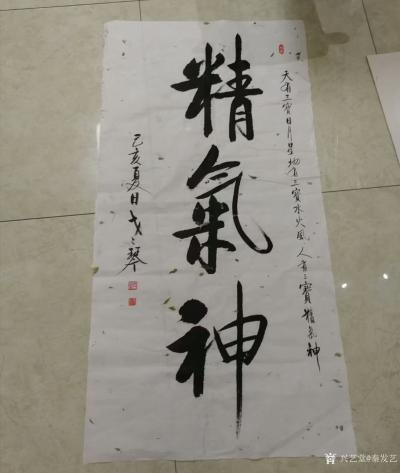 天有三寶日月星地有三寶水火風人有三寶精氣神
精氣神
己亥夏日
兴艺堂@秦发艺